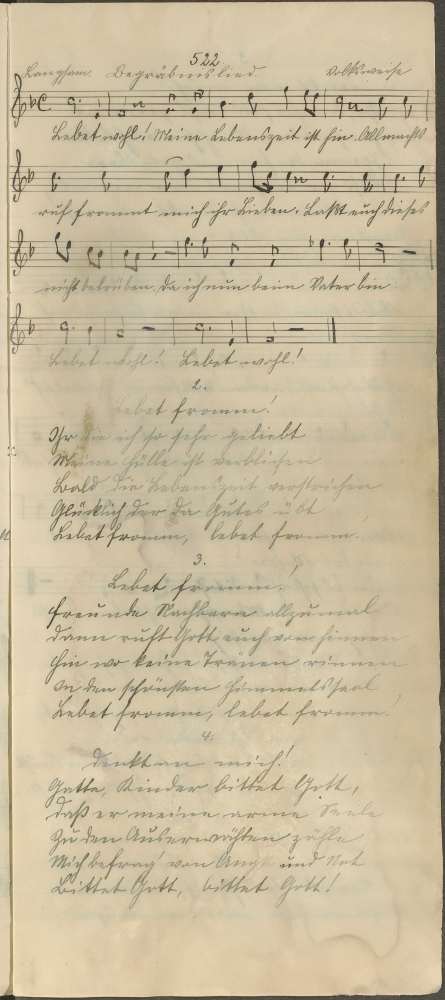 522
Langsam. Begräbnislied Volksweise
Lebet wohl! Meine Lebenszeit ist hin. Allmachts
ruf kommt mich ihr Lieben. Laßt euch dieses
nicht betrüben, da ich nun beim Vater bin
Lebet wohl! Lebet wohl!
2.
Lebet fromm!
Ihr die ich so sehr geliebt
Meine Hülle ist verblichen
Bald die Lebenszeit verstrichen
Glücklich der da Gutes übt
Lebet fromm, lebet fromm.
3.
Lebet fromm!
Freunde Nachbarn allzumal
dann ruft Gott euch von hinnen
Hin wo keine Tränen rinnen
In den schönsten Himmelssaal
Lebet fromm, lebet fromm!
4.
Denkt an mich!
Gatte, Kinder bittet Gott,
daß er meine arme Seele
Zu den Auserwählten zähle
Mich befrag' von Angst und Not
Bittet Gott, bittet Gott!